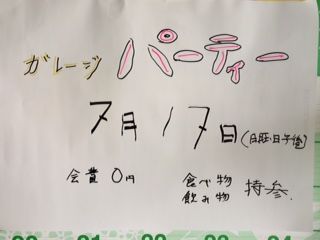 ガレージ パーティー
7月17日(日曜日午後)
会費 0円
食べ物
飲み物 持参.